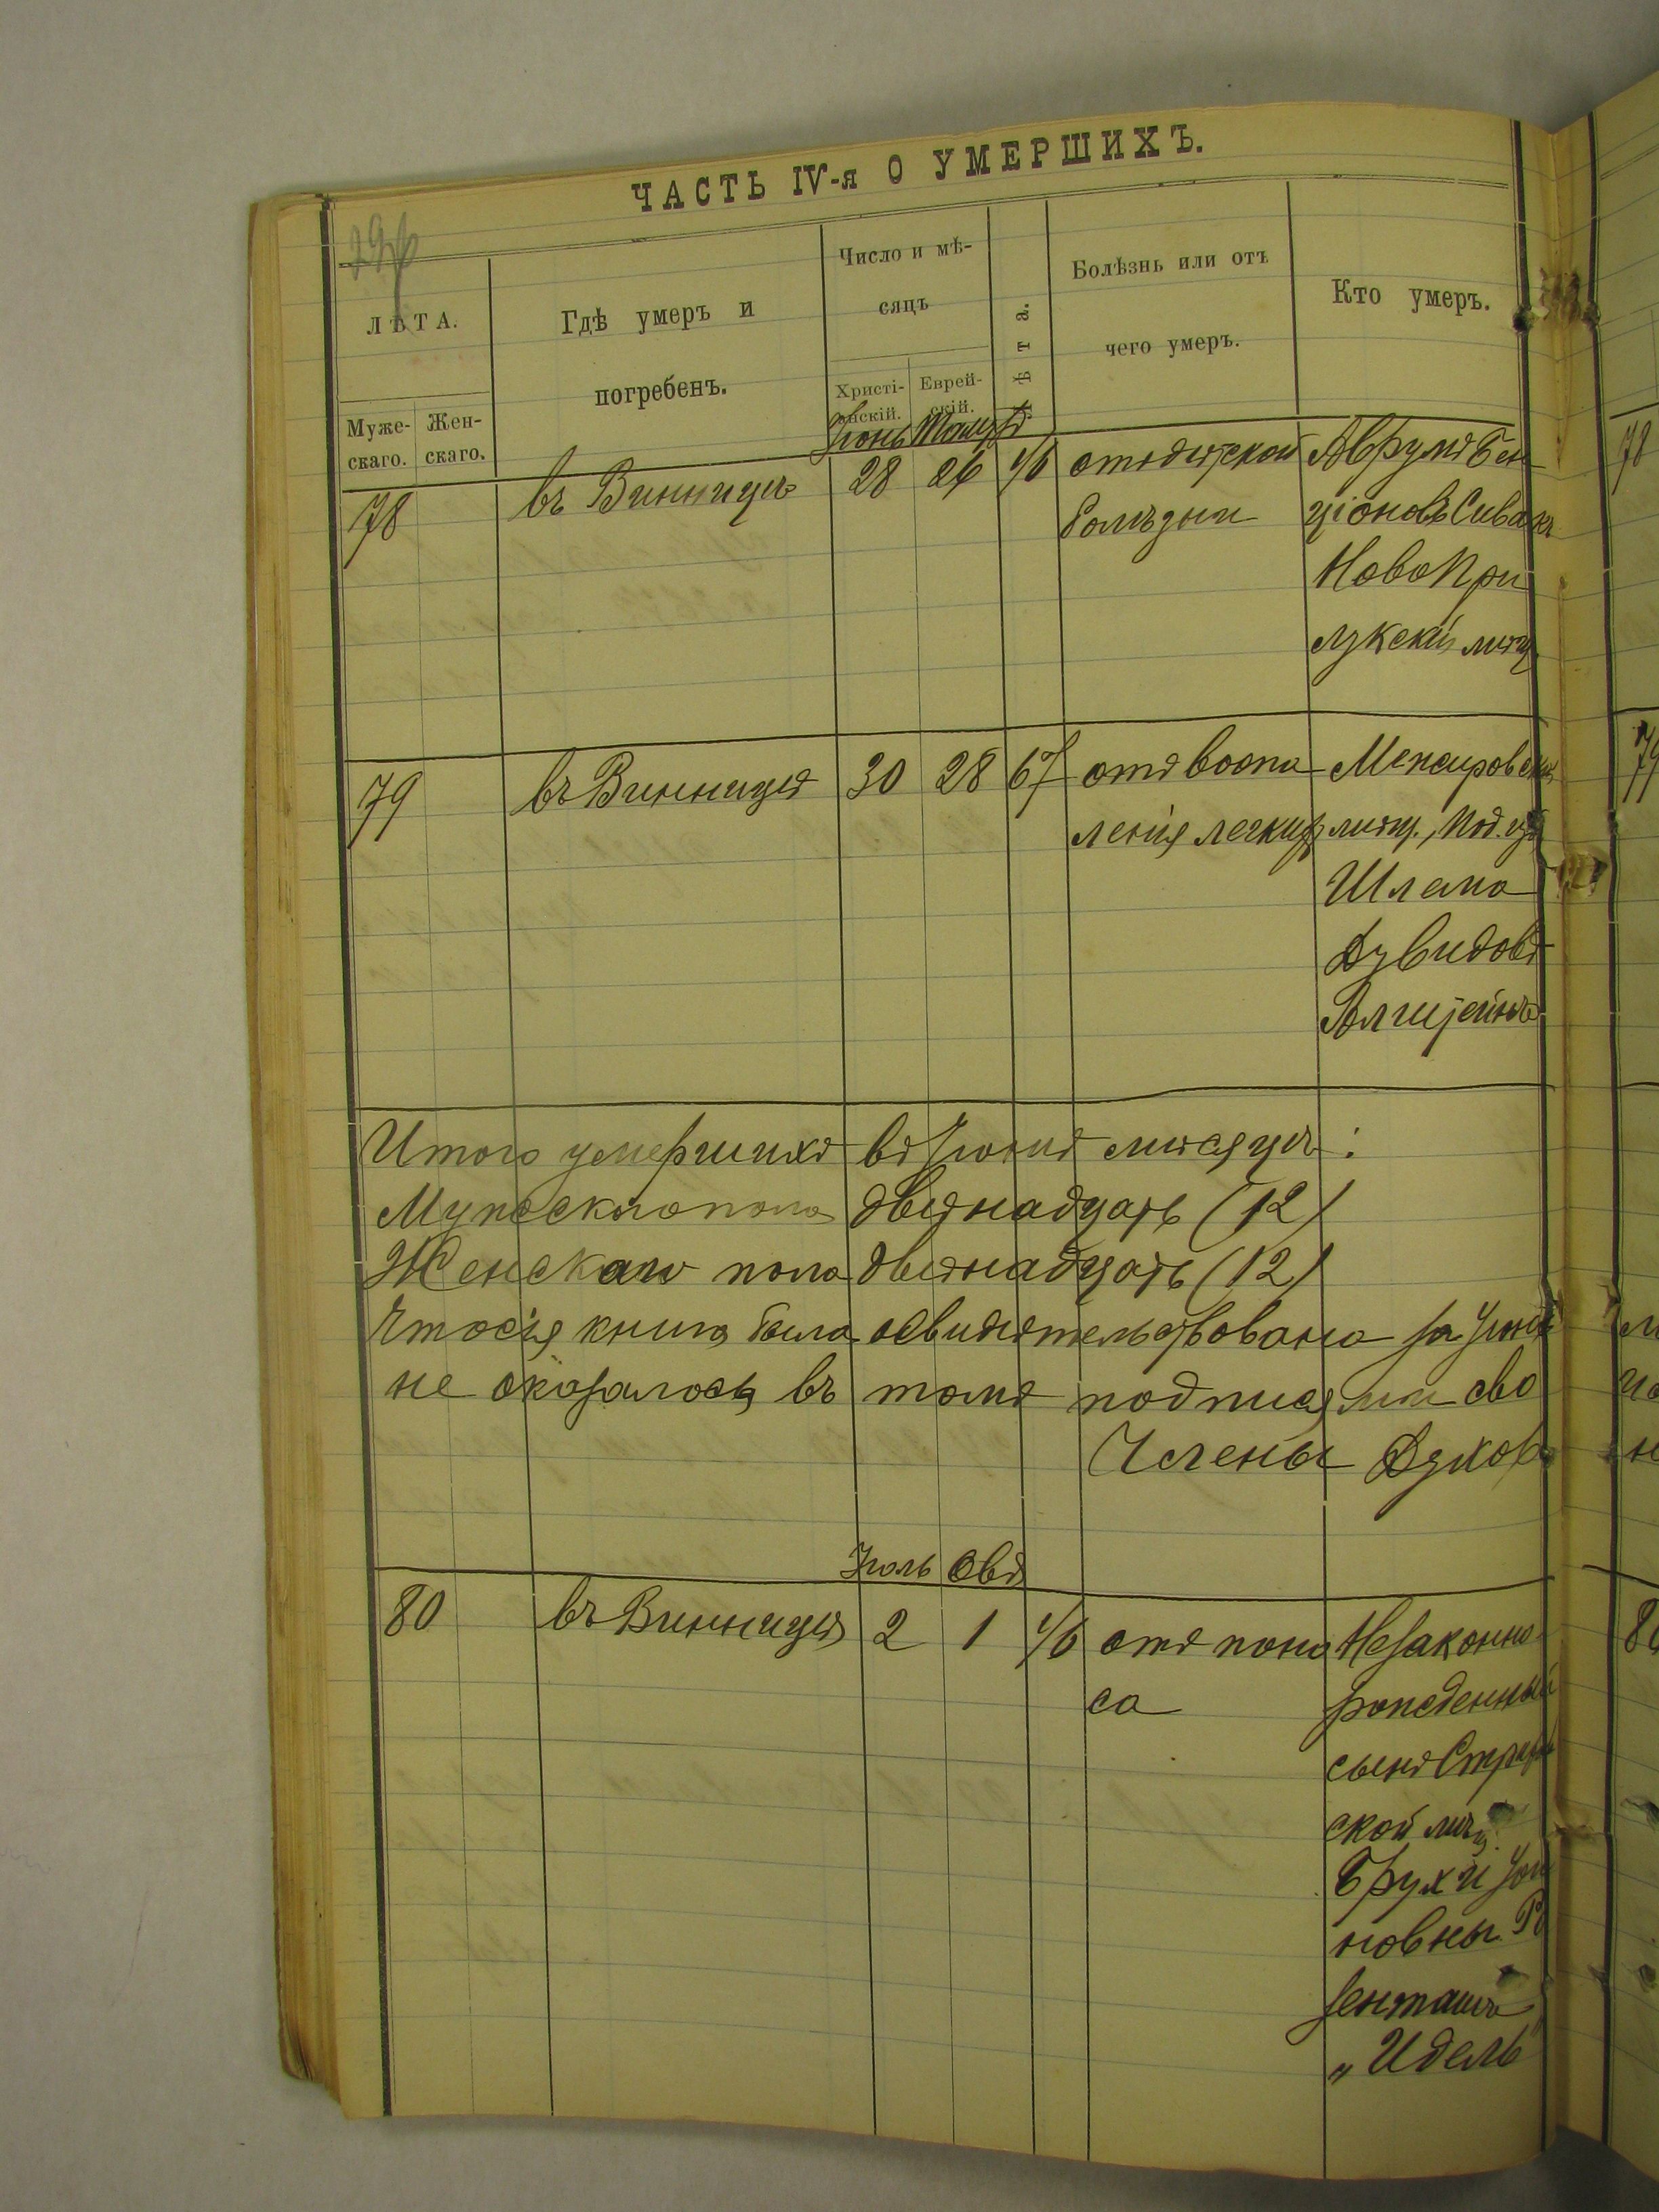 ЧАСТЬ IV-я О УМЕРШИХЪ.
ЛѢТА.
Муже-
скаго.
Жен-
скаго.
Гдѣ умеръ и
погребенъ.
Число и мѣ-
сяцъ
Христі-
анскій.
Еврей-
скій.
Лѣта.
Болѣзнь или отъ
чего умеръ.
Кто умеръ.
Іюнь
78 въ Винницѣ 28 26 отъ дѣтской Аврумъ Бен
болѣзни ціоновъ Сивакъ
Ново При
лукскій мѣщ.
79 въ Винницѣ 30 28 67 отъ воспа
ленія легкихъ мѣщ., Под. гу
Шлема
Дувидовъ
Итого умершихъ въ Іюнѣ мѣсяцѣ:
Мужескаго пола двѣнадцать (12)
Женскаго пола двѣнадцать (12)
Что сія книга была освидѣтельствована за Іюнь
не оказалось въ томъ подписями сво
Члены Духов
Іюль Овъ
80 въ Винницѣ 2 1 отъ поно Незаконно
са рожденный
сынъ
ской мѣщ.
Брухи
новны Ро
„Идель"